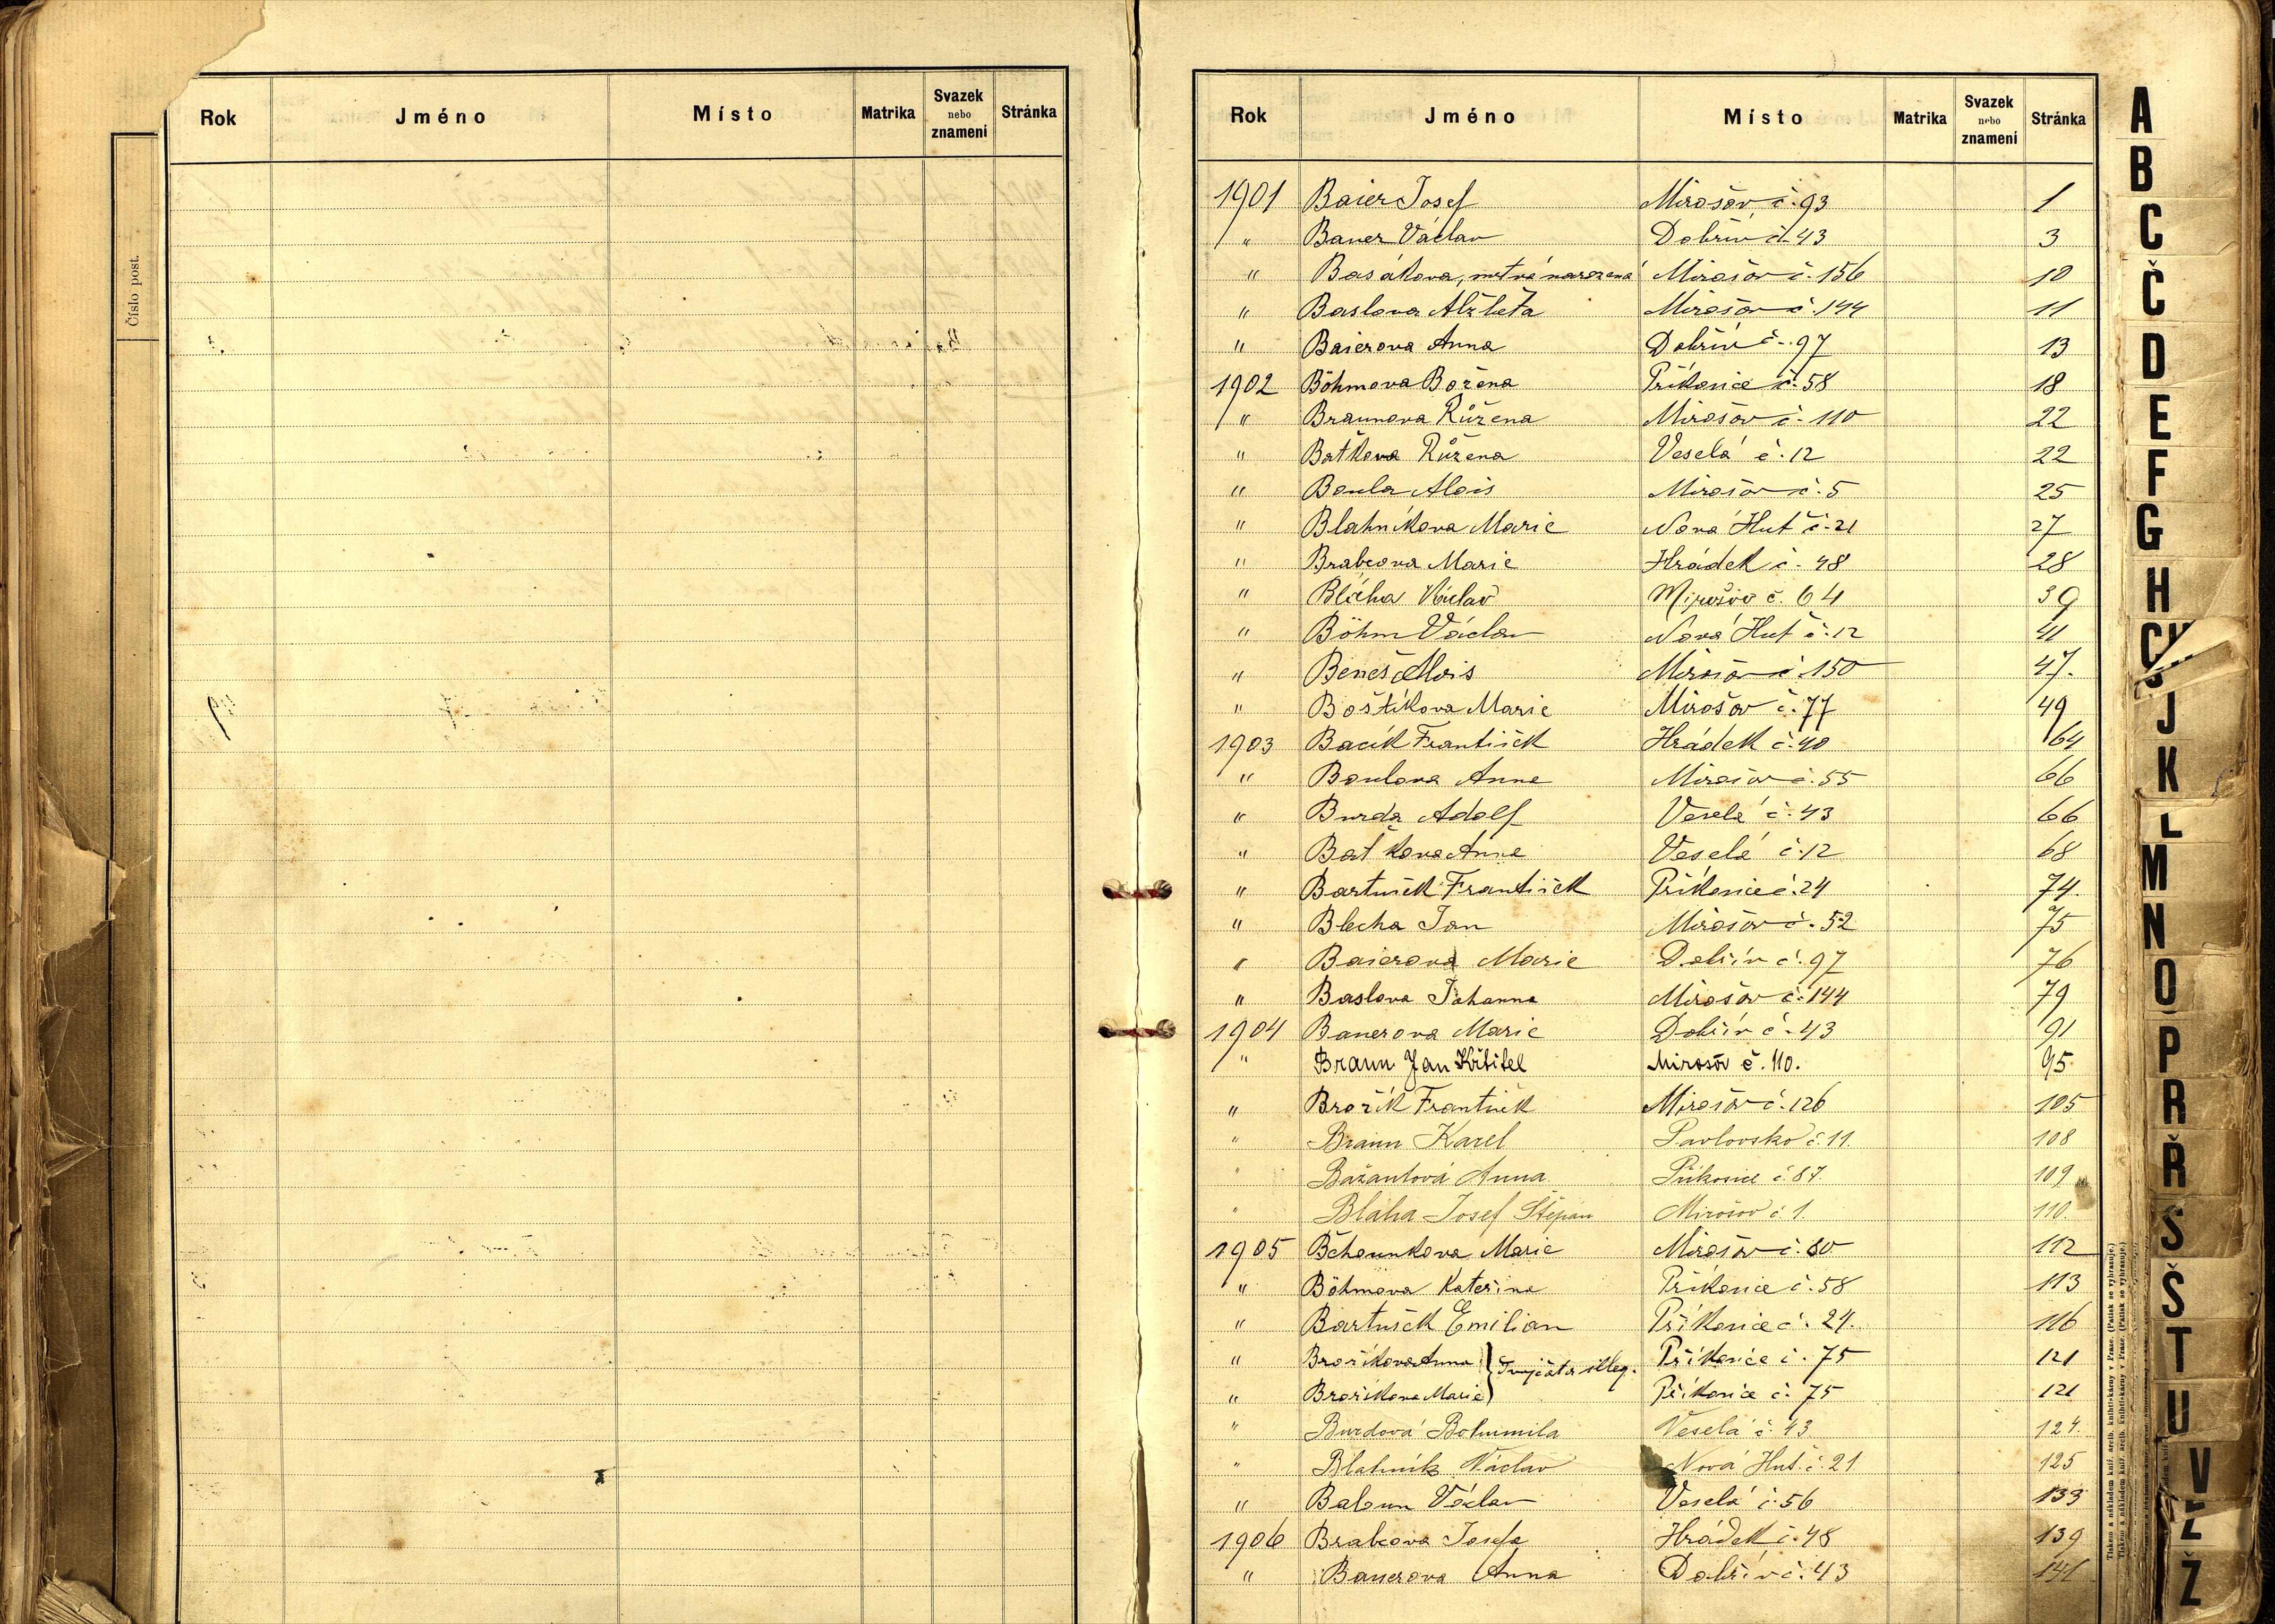 Číslo post.
Rok Jméno Místo Matrika Svazek nebo znamení Stránka
Rok Jméno Místo Matrika Svazek nebo znamení Stránka
1901 Baier Josef Mirošov č. 93 1
" Bauer Václav Dobřív č. 43 3
" Basákova, mrtvě narozená Mirošov č. 156 10
" Baslova Alžběta Mirošov č. 144 11
" Baierova Anna Dobřív č. 97 13
1902 Böhmova Božena Příkosice č. 58 18
" Braunova Růžena Mirošov č. 110 22
" Baťkova Růžena Veselá č. 12 22
" Boula Alois Mirošov č. 5 25
" Blahníkova Marie Nová Huť č. 21 27
" Brabcova Marie Hrádek č. 48 28
" Bláha Václav Mirošov č. 64 39
" Böhm Václav Nová Huť č. 12 41
" Beneš Alois Mirošov č. 150 47.
" Boštíkova Marie Mirošov č. 77 49
1903 Bacík František Hrádek č. 40 64
" Boulova Anna Mirošov č. 55 66
" Burda Adolf Veselá č. 43 66
" Baťkova Anna Veselá č. 12 68
" Bartušek František Příkosice č. 24 74.
" Blecha Jan Mirošov č. 52 75
" Baierova Marie Dobřív č. 97 76
" Baslova Johanna Mirošov č. 144 79
1904 Bauerova Marie Dobřív č. 43 91
" Braun Jan Křtitel Mirošov č. 110. 95
" Brožík František Mirošov č. 126 105
" Braun Karel Pavlovsko č. 11. 108
" Bažantová Anna Příkosice č. 87. 109
" Bláha Josef Štěpán Mirošov č. 1. 110.
1905 Bchounkova Marie Mirošov č. 80 112
" Böhmova Kateřina Příkosice č. 58 113
" Bartušek Emilian Příkosice č. 24. 116
" Brožíkova Anna } Dvojčata illeg. Příkosice č. 75 121
" Brožíkova Marie } Příkosice č. 75 121
" Burdová Bohumila Veselá č. 43 124.
" Blahník Václav Nová Huť č. 21 125
" Baloun Václav Veselá č. 56 133
1906 Brabcova Josefa Hrádek č. 48 139
" Bauerova Anna Dobřív č. 43 141
A
B
C
Č
D
E
F
G
H
CH
J
K
L
M
N
O
P
R
Ř
S
Š
T
U
V
Z
Ž